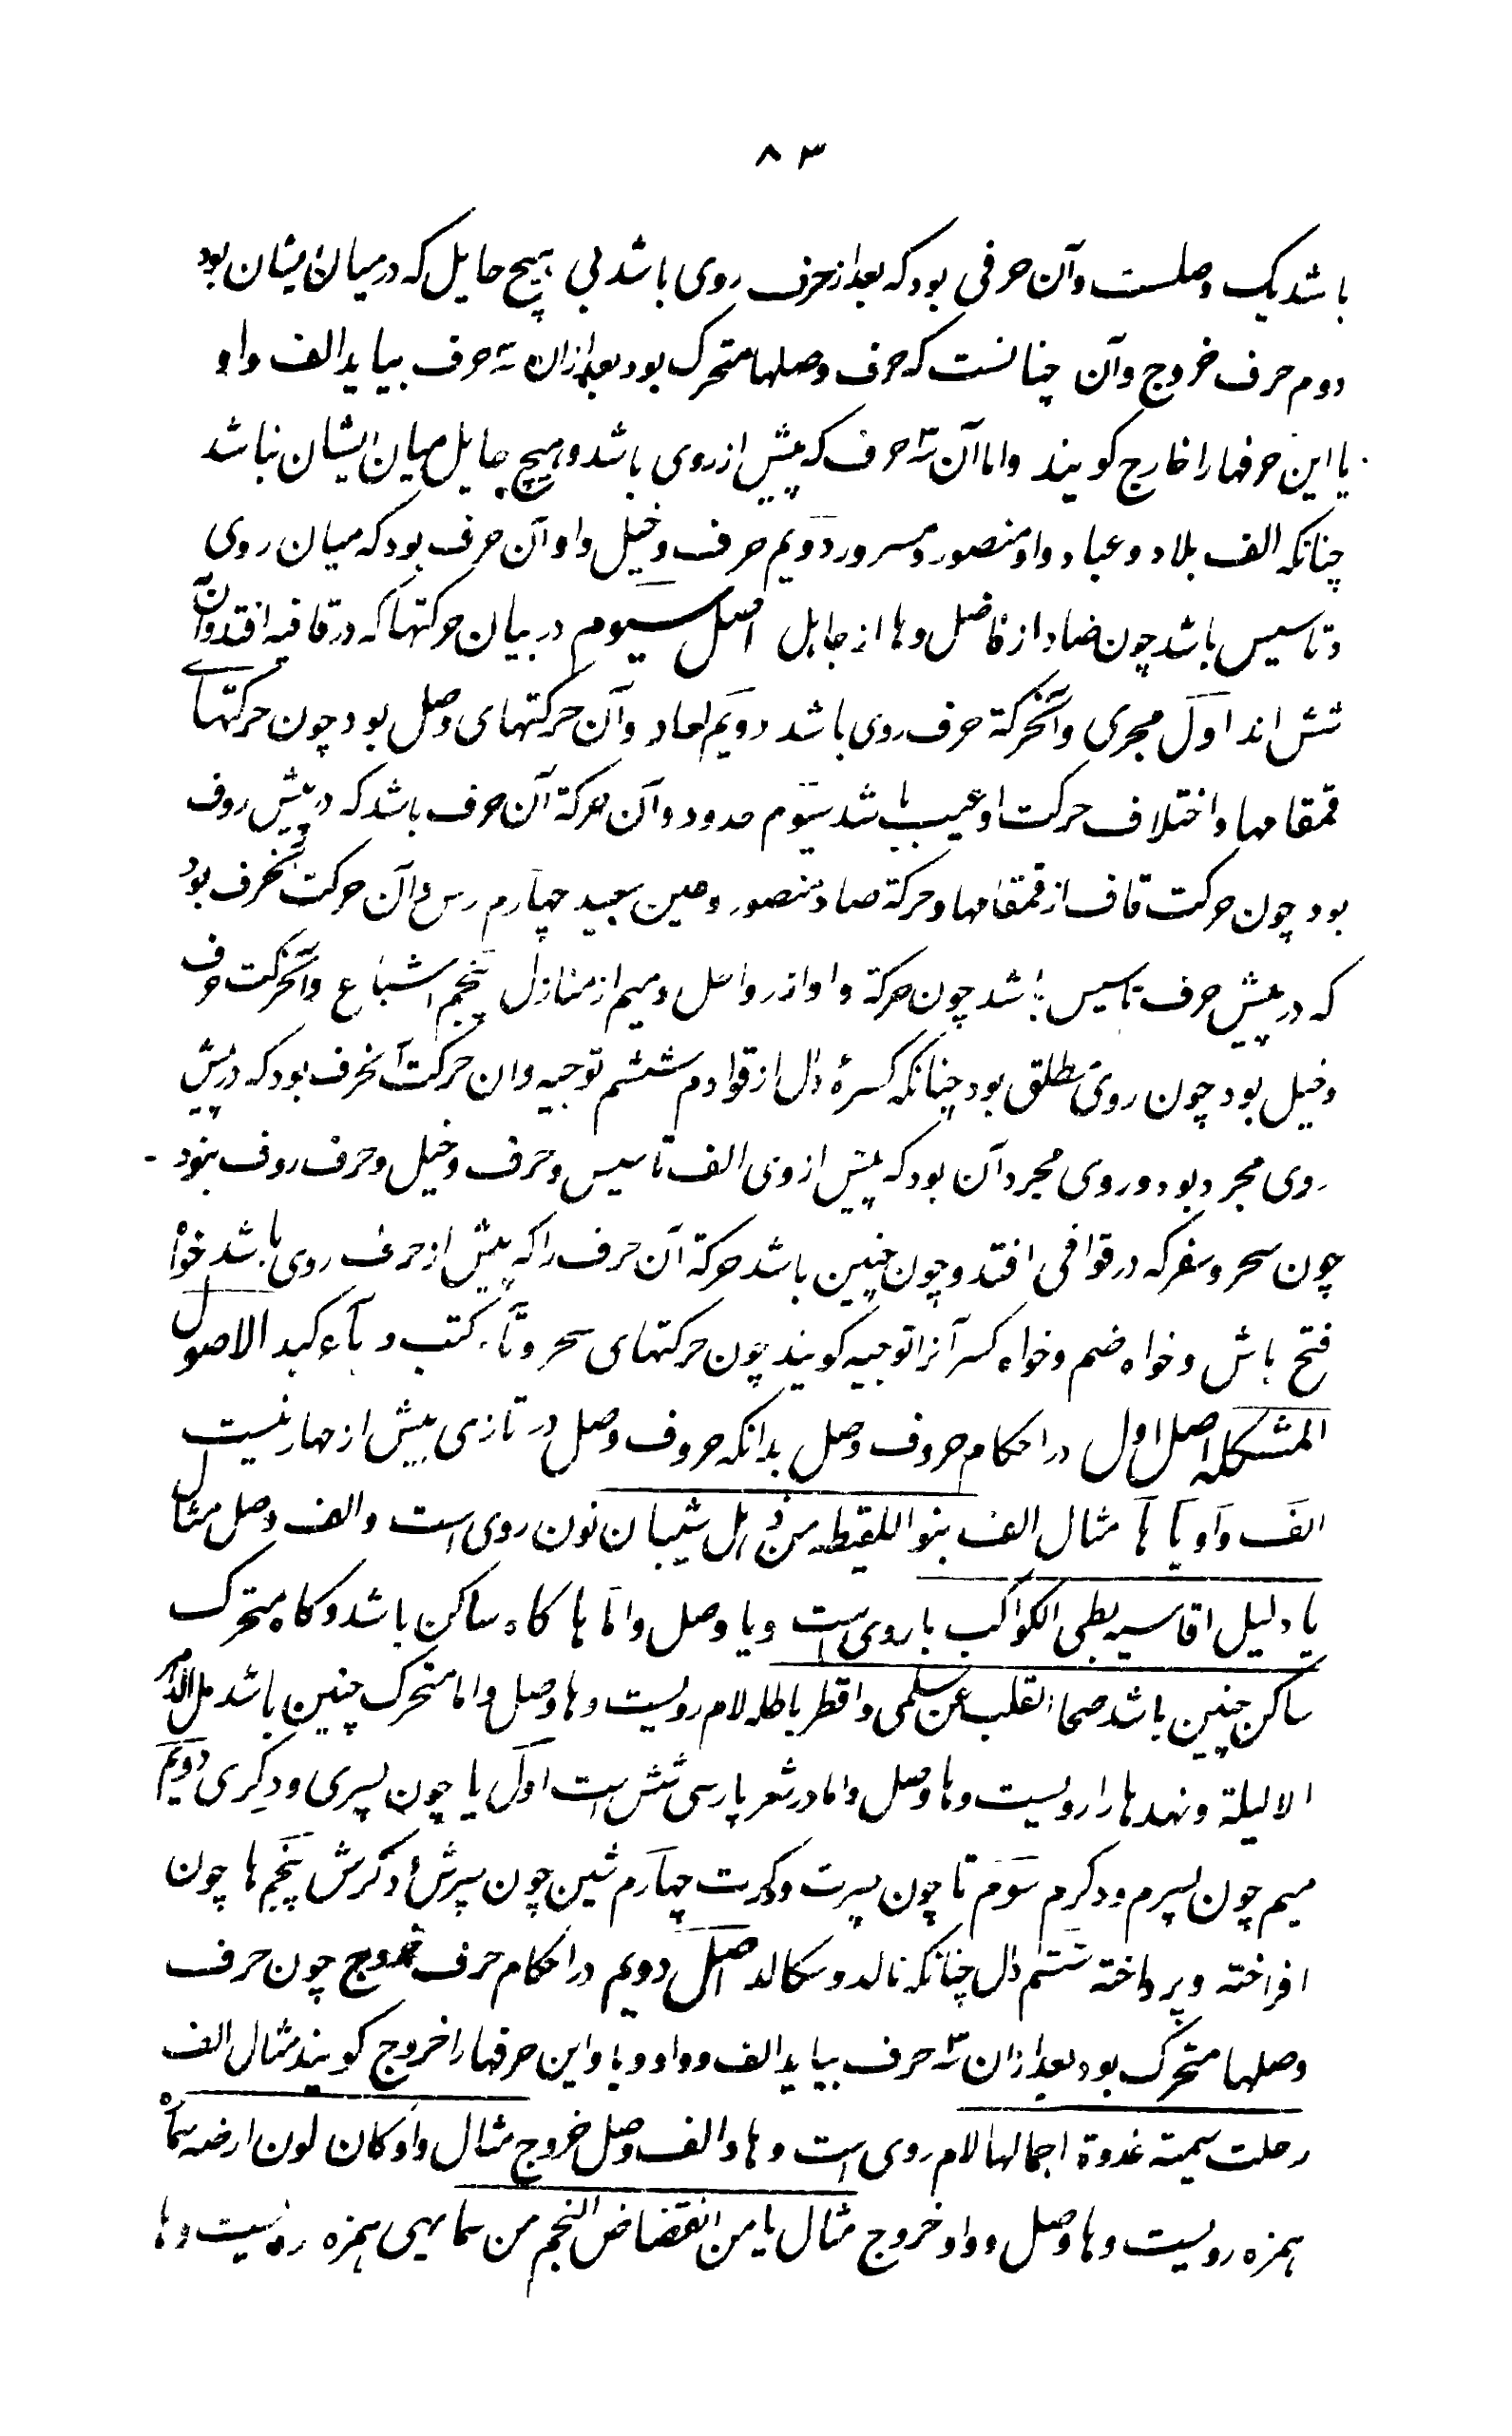 ۸۳
باشد یک وصلست وآن حرفی بود که بعد از حرف روی باشد بی هیچ حایل که در میان ایشان بود
دوم حرف خروج وآن چنانست که حرف وصلها متحرک بود بعد ازان سه حرف بیاید الف واو
یا این حرفها را خارج کویند واما آن سه حرف که پیش از روی باشد وهیچ حایل میان ایشان نباشد
چنانکه الف بلاد وعباد واو منصور ومسرور دویم حرف دخیل واو آن حرف بود که میان روی
وتاسیس باشد چون ضاد از فاضل وها از جاهل اصل سیوم در بیان حرکتها که در قافیه افتد وآن
شش اند اول مجری وآنحرکة حرف روی باشد دویم نفاد وآن حرکتهای وصل بود چون حرکتهای
قمقامها واختلاف حرکت او عیب باشد سیوم حدود وآن حرکة آن حرف باشد که در پیش ردف
بود چون حرکت قاف از قمقامها وحرکة صاد منصور وعین سعید چهارم رس وآن حرکت آنحرف بود
که در پیش حرف تاسیس باشد چون حرکة واو از رواحل ومیم از منازل پنجم اشباع وآنحرکت حرف
دخیل بود چون روی مطلق بود چنانکه کسرهٔ دال از قوادم ششم توجیه وان حرکت آنحرف بود که در پیش
روی مجرد بود وروی مجرد آن بود که پیش از وی الف تاسیس وحرف دخیل وحرف ردف نبود
چون سحر وسفر که در قوافی افتد وچون چنین باشد حرکة آن حرف را که پیش از حرف روی باشد خواه
فتح باش وخواه ضم وخواه کسر آنرا توجیه کویند چون حرکتهای سحر وتاء کتب وباء کبد الاصول
المشکله اصل اول در احکام حروف وصل بدانکه حروف وصل در تازی بیش از چهار نیست
الف واو یا ها مثال الف بنو اللقیطه من ذهل شیبان نون روی است والف وصل مثال
یا ولیل اقاسیه بطی الکواکب با روی است ویا وصل واما ها کاه ساکن باشد وکاه متحرک
ساکن چنین باشد صحا القلب عن سلمی واقصر باطله لام رویست وها وصل واما متحرک چنین باشد
الا لیلة ونهدها را رویست وها وصل واما در شعر پارسی شش است اول یا چون پسری ودکری دویم
میم چون پسرم ودکرم سوم تا چون پسرت ودکرت چهارم شین چون پسرش ودکرش پنجم ها چون
افراخته وپرداخته ششم دال چنانکه نالد وسکالد اصل دویم در احکام حرف خروج چون حرف
وصلها متحرک بود بعد ازان سه حرف بیاید الف وواو ویا واین حرفها را خروج کویند مثال الف
رحلت سمیة غدوة اجمالها لام روی است وها والف وصل خروج مثال واو کان لون ارضه سماه
همزه رویست وها وصل وواو خروج مثال یا من انقضاض النجم من سمایهی همزه رویست وها